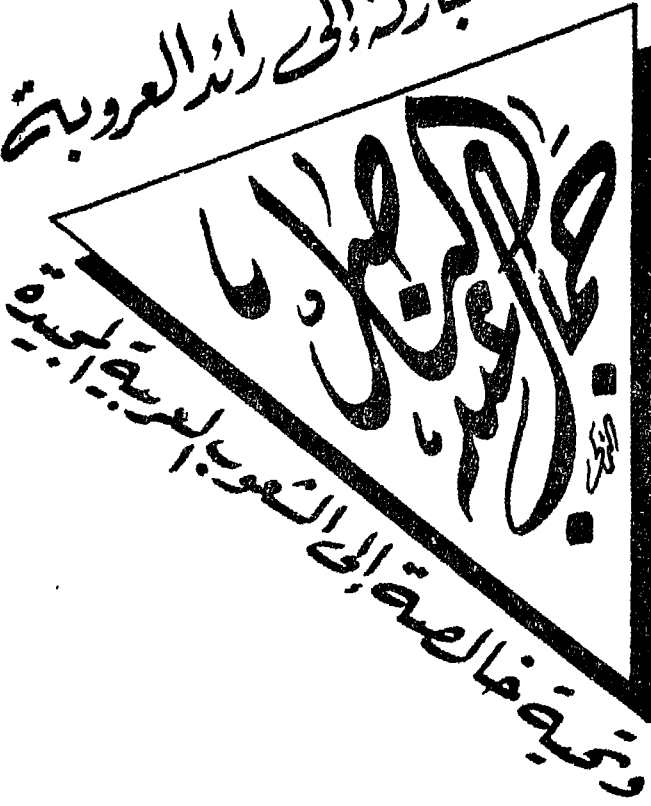 إلى رائد العروبة
جمال عبد الناصر
وتحية خالصة إلى الشعوب العربية المجيدة